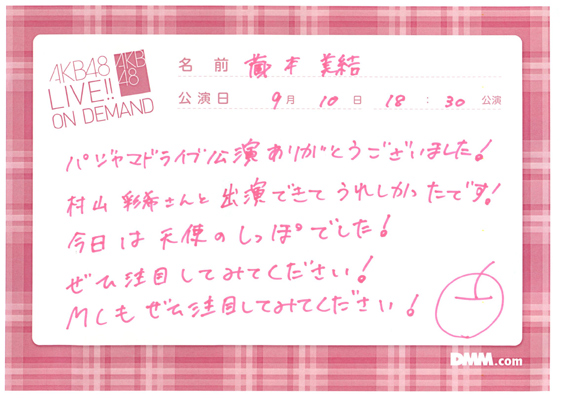 AKB48
LIVE!!
ON DEMAND
AKB
48
名前 蔵本美結
公演日 9月10日 18:30 公演
パジャマドライブ公演ありがとうございました!
村山彩希さんと出演できてうれしかったです!
今日は天使のしっぽでした!
ぜひ注目してみてください!
MCもぜひ注目してみてください!
DMM.com